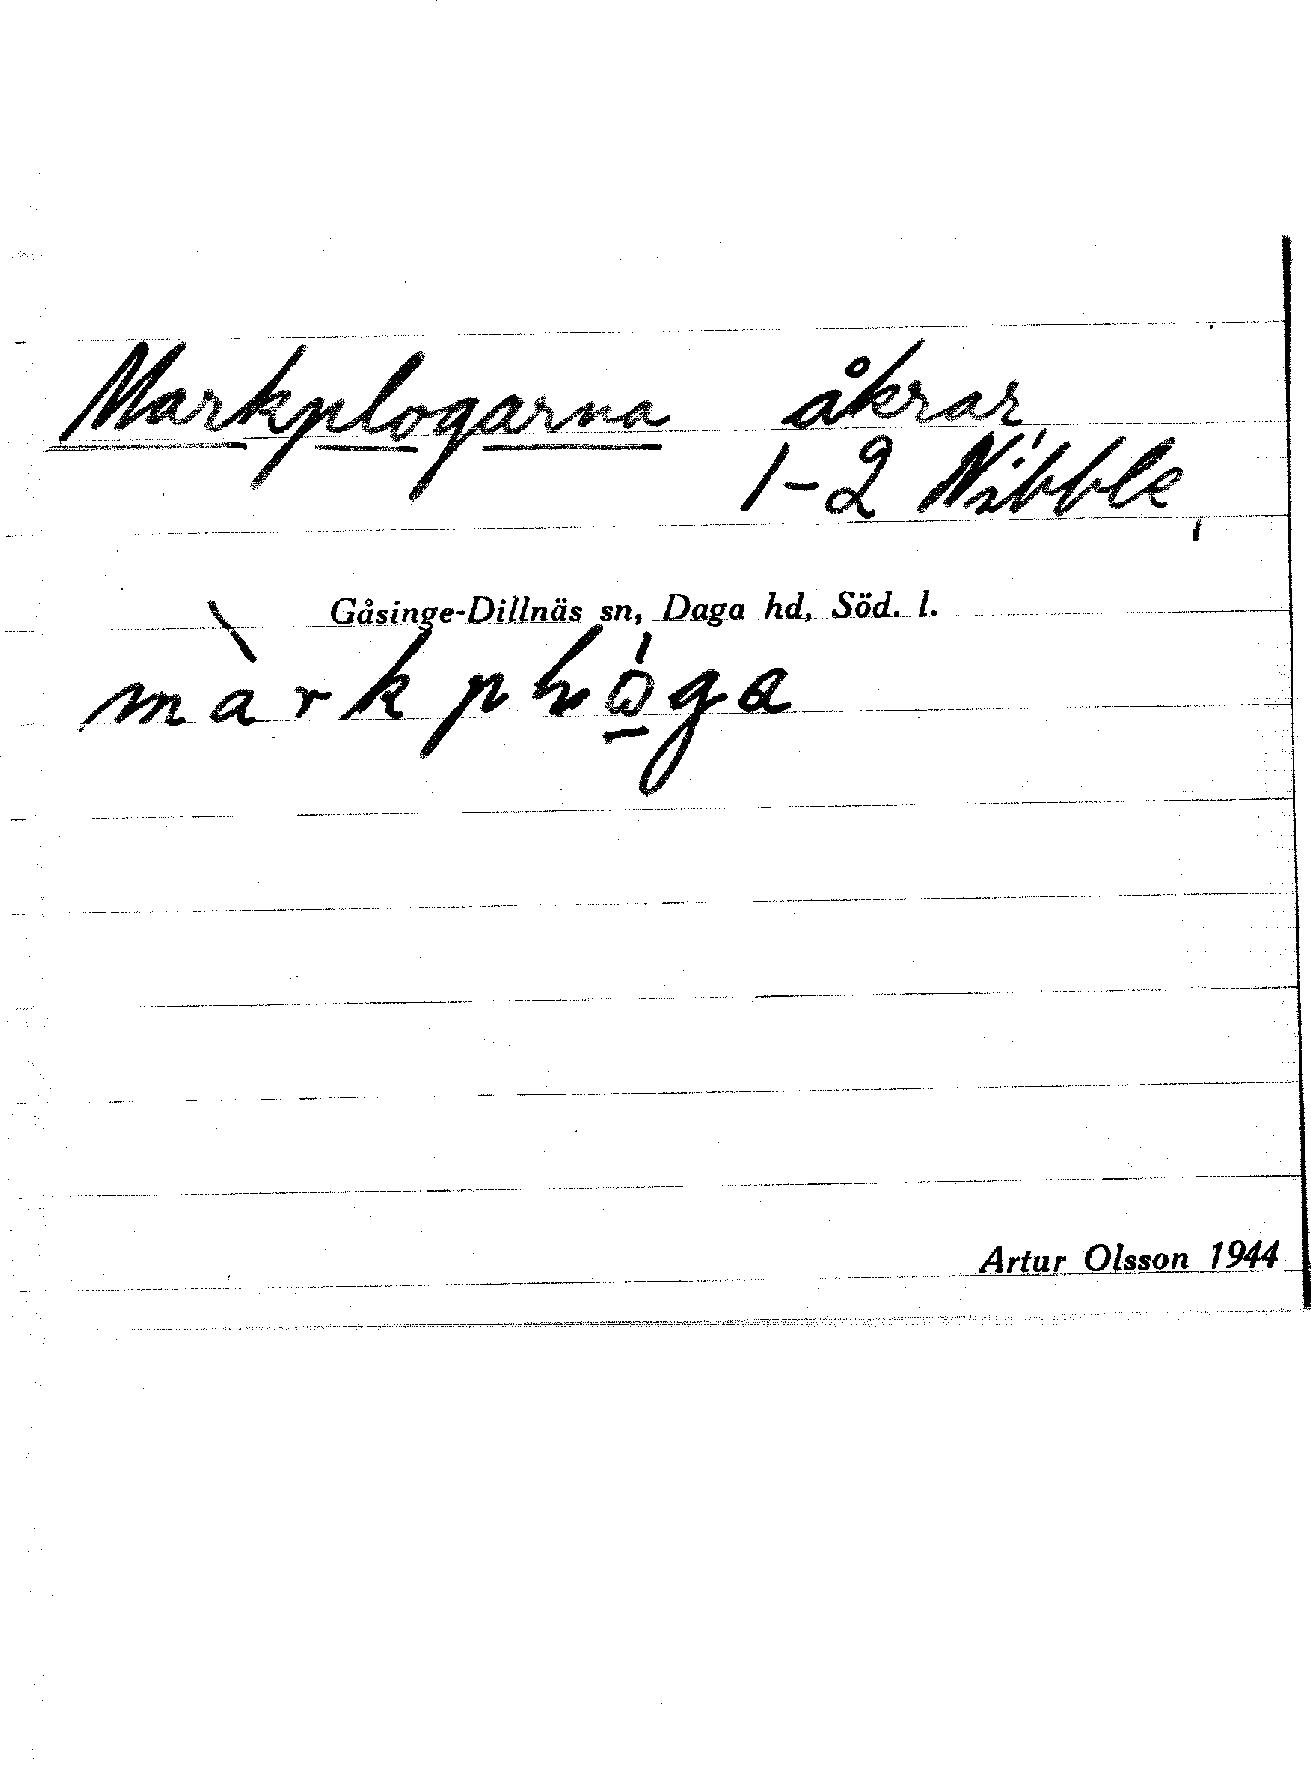 Markplogarna åkrar,
1-2 Nibble,
Gåsinge-Dillnäs sn, Daga hd, Söd. l.
Artur Olsson 1944